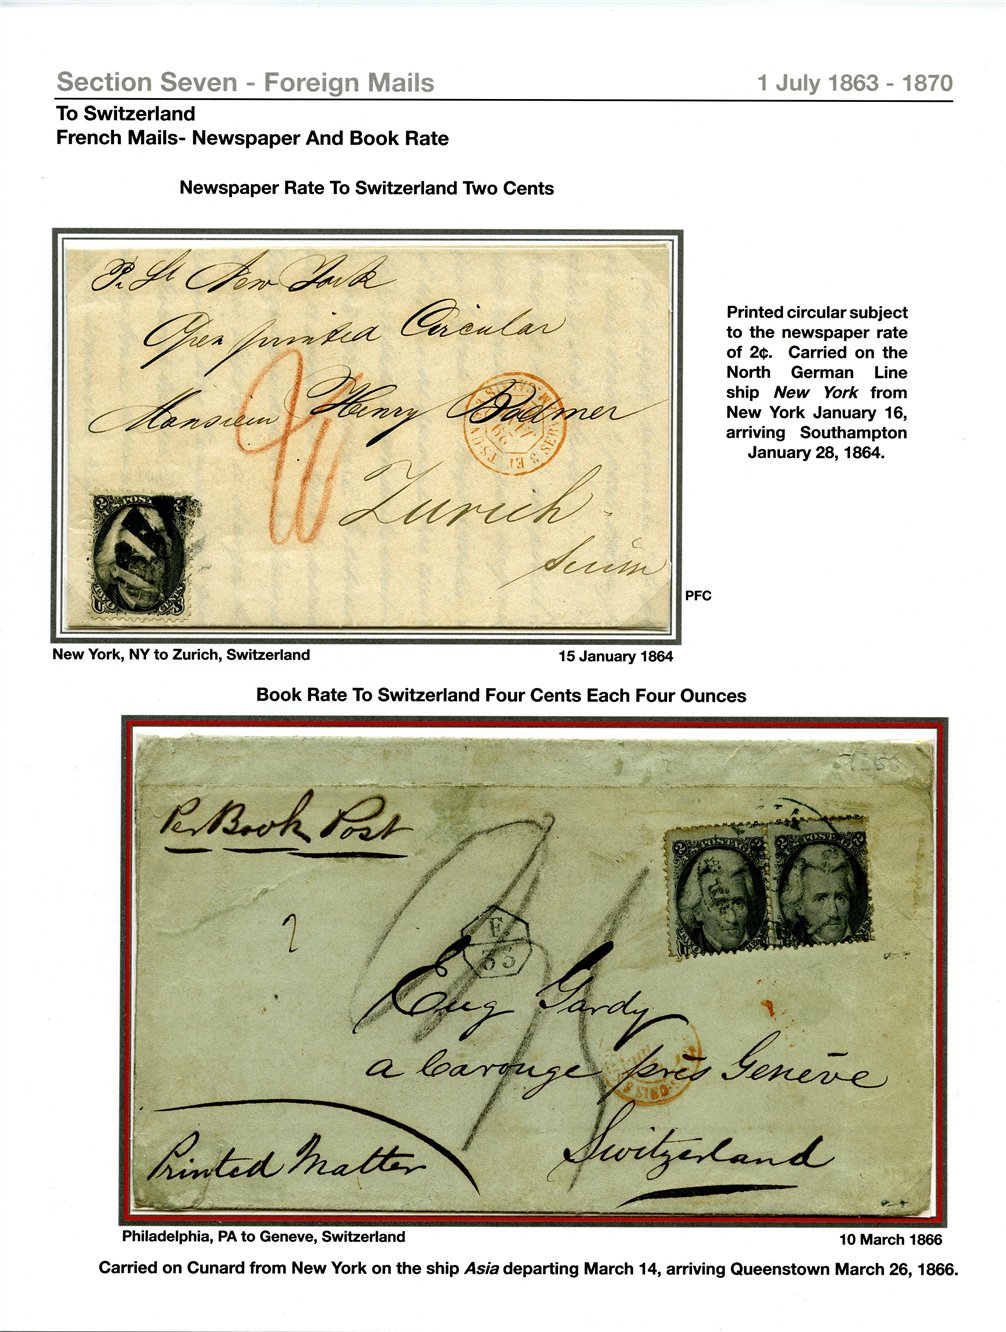 Section Seven - Foreign Mails 1 July 1863 - 1870
To Switzerland
French Mails- Newspaper And Book Rate
Newspaper Rate To Switzerland Two Cents
Pr St New York
Open printed Circular
Monsieur Henry Bodmer
Zurich
Suisse
Printed circular subject
to the newspaper rate
of 2¢. Carried on the
North German Line
ship New York from
New York January 16,
arriving Southampton
January 28, 1864.
PFC
New York, NY to Zurich, Switzerland 15 January 1864
Book Rate To Switzerland Four Cents Each Four Ounces
Per Book Post
F.
35
Eug Gardy
a Carouge près Genève
Switzerland
Printed Matter
Philadelphia, PA to Geneve, Switzerland 10 March 1866
Carried on Cunard from New York on the ship Asia departing March 14, arriving Queenstown March 26, 1866.